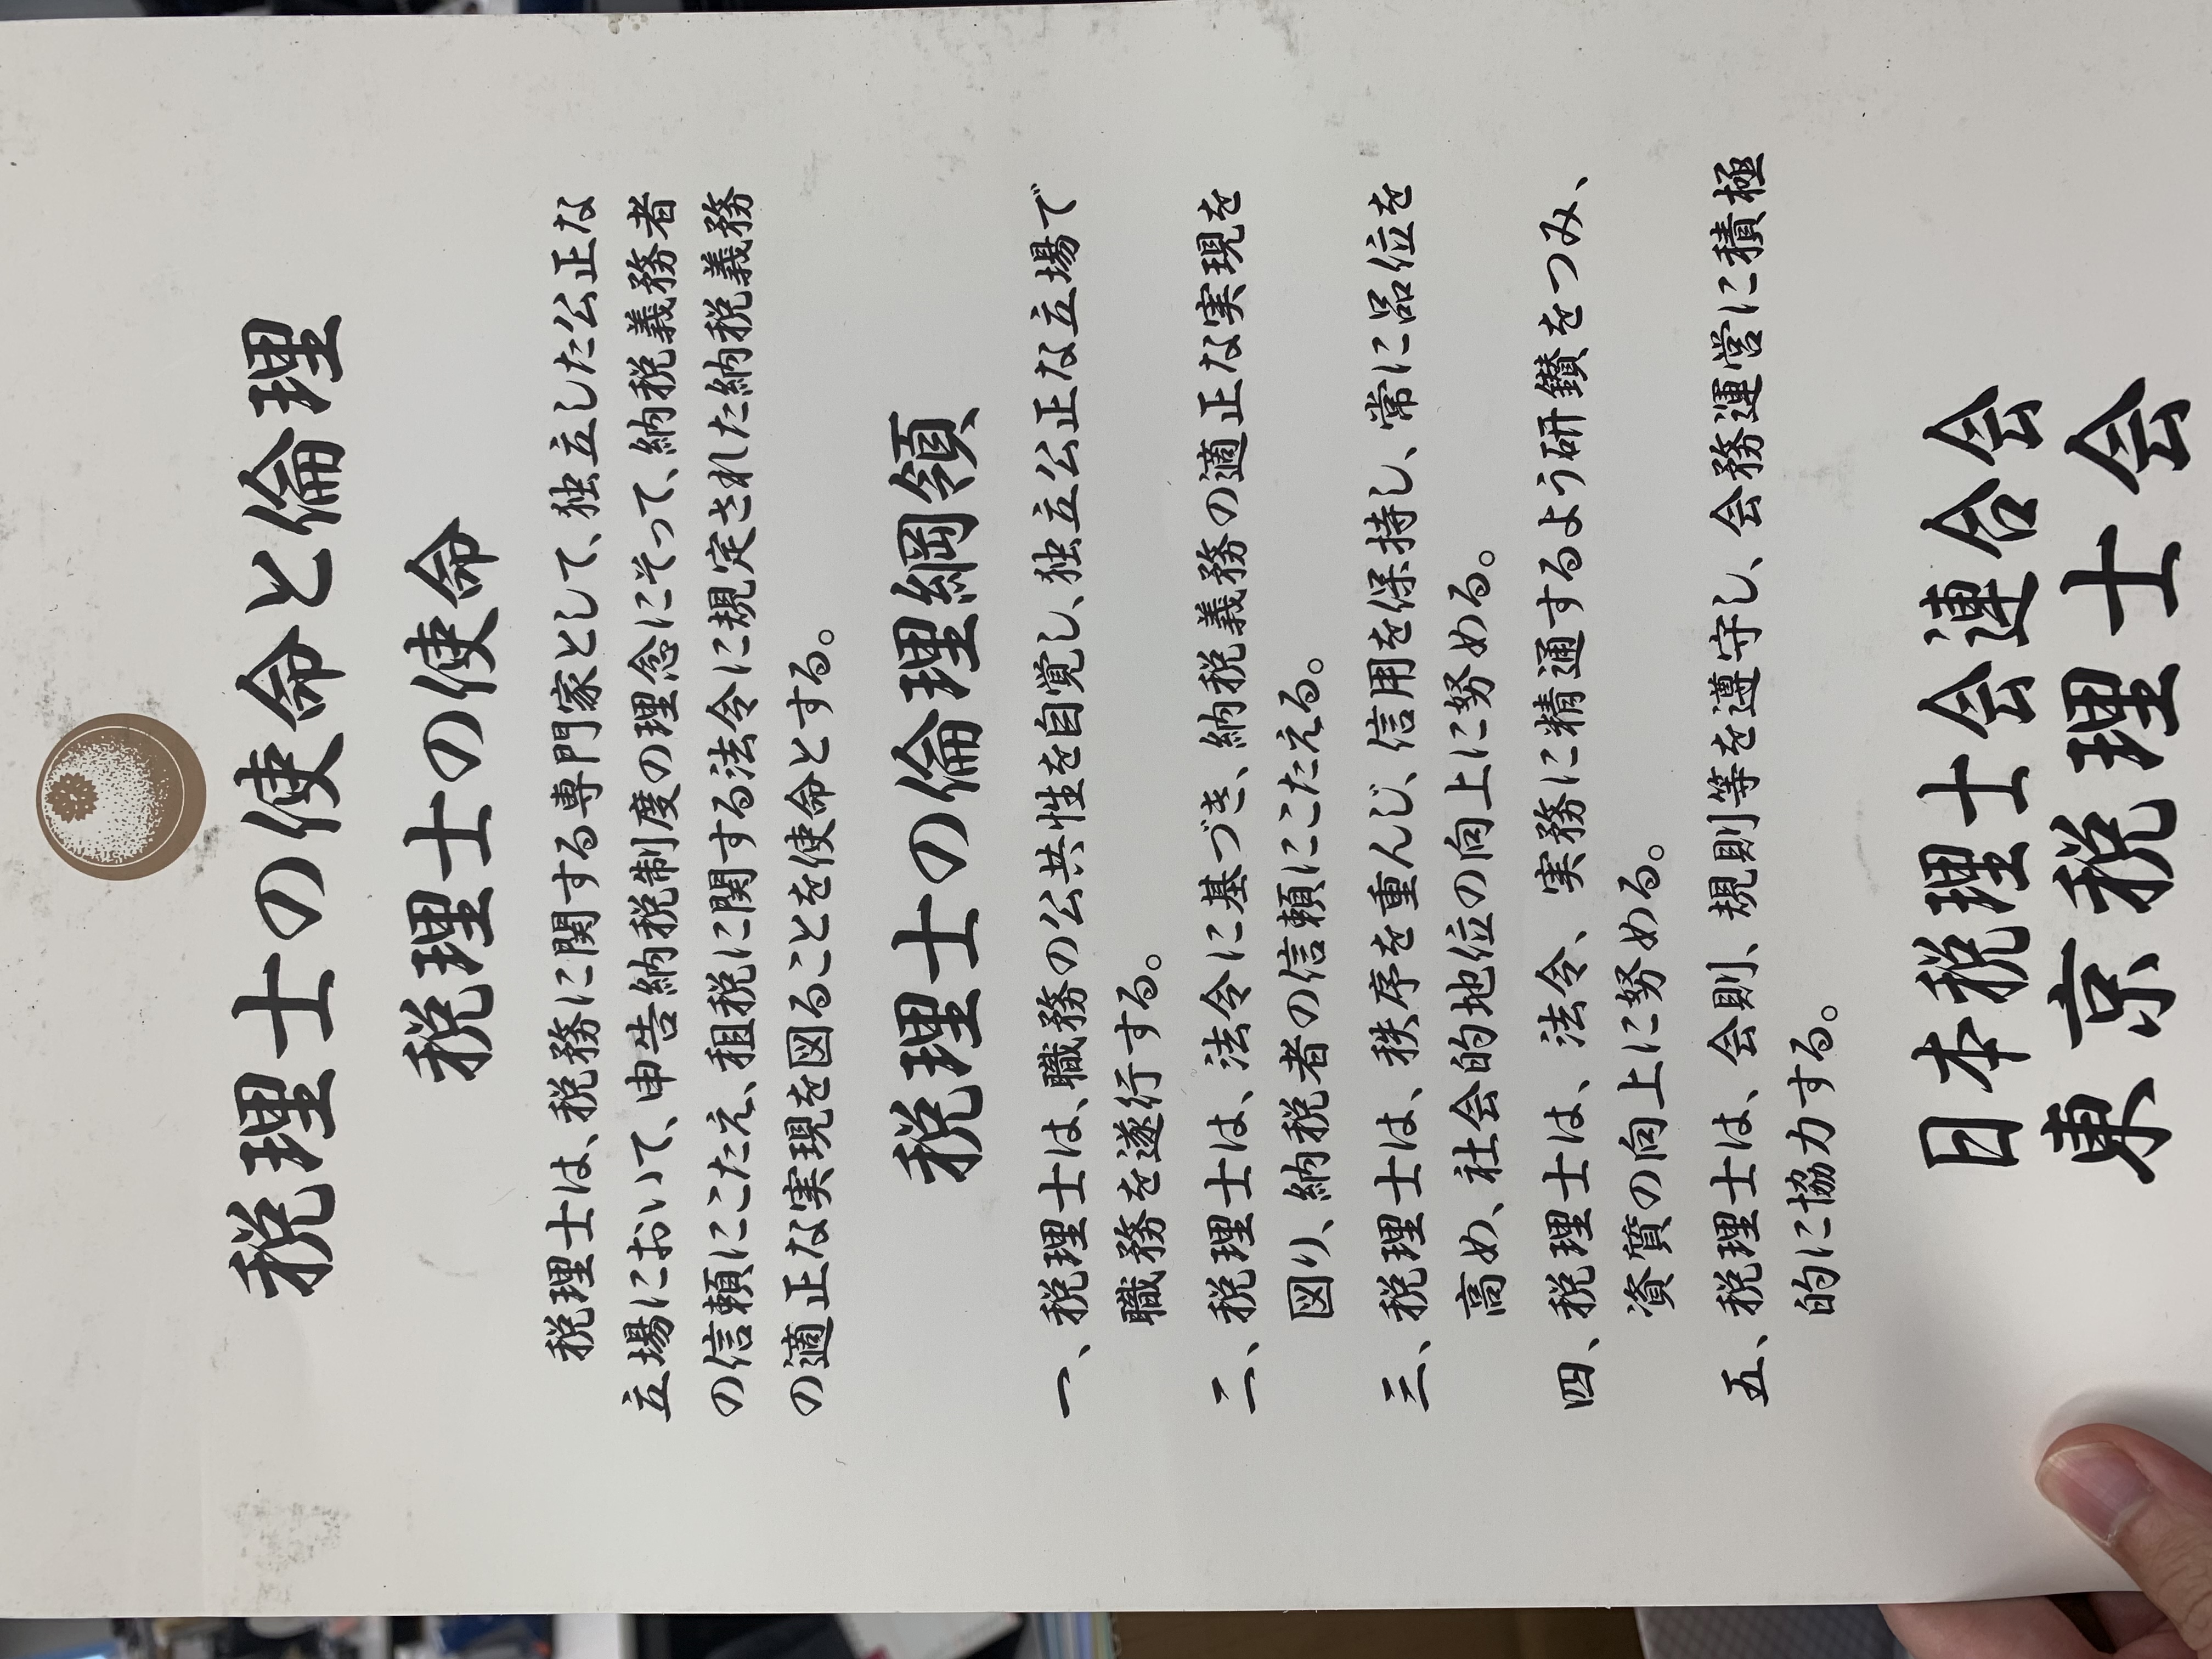 税理士の使命と倫理
税理士の使命
税理士は、税務に関する専門家として、独立した公正な
立場において、申告納税制度の理念にそって、納税義務者
の信頼にこたえ、租税に関する法令に規定された納税義務
の適正な実現を図ることを使命とする。
税理士の倫理綱領
一、税理士は、職務の公共性を自覚し、独立公正な立場で
職務を遂行する。
二、税理士は、法令に基づき、納税義務の適正な実現を
図り、納税者の信頼にこたえる。
三、税理士は、秩序を重んじ、信用を保持し、常に品位を
高め、社会的地位の向上に努める。
四、税理士は、法令、実務に精通するよう研鑽をつみ、
資質の向上に努める。
五、税理士は、会則、規則等を遵守し、会務運営に積極
的に協力する。
日本税理士会連合会
東京税理士会